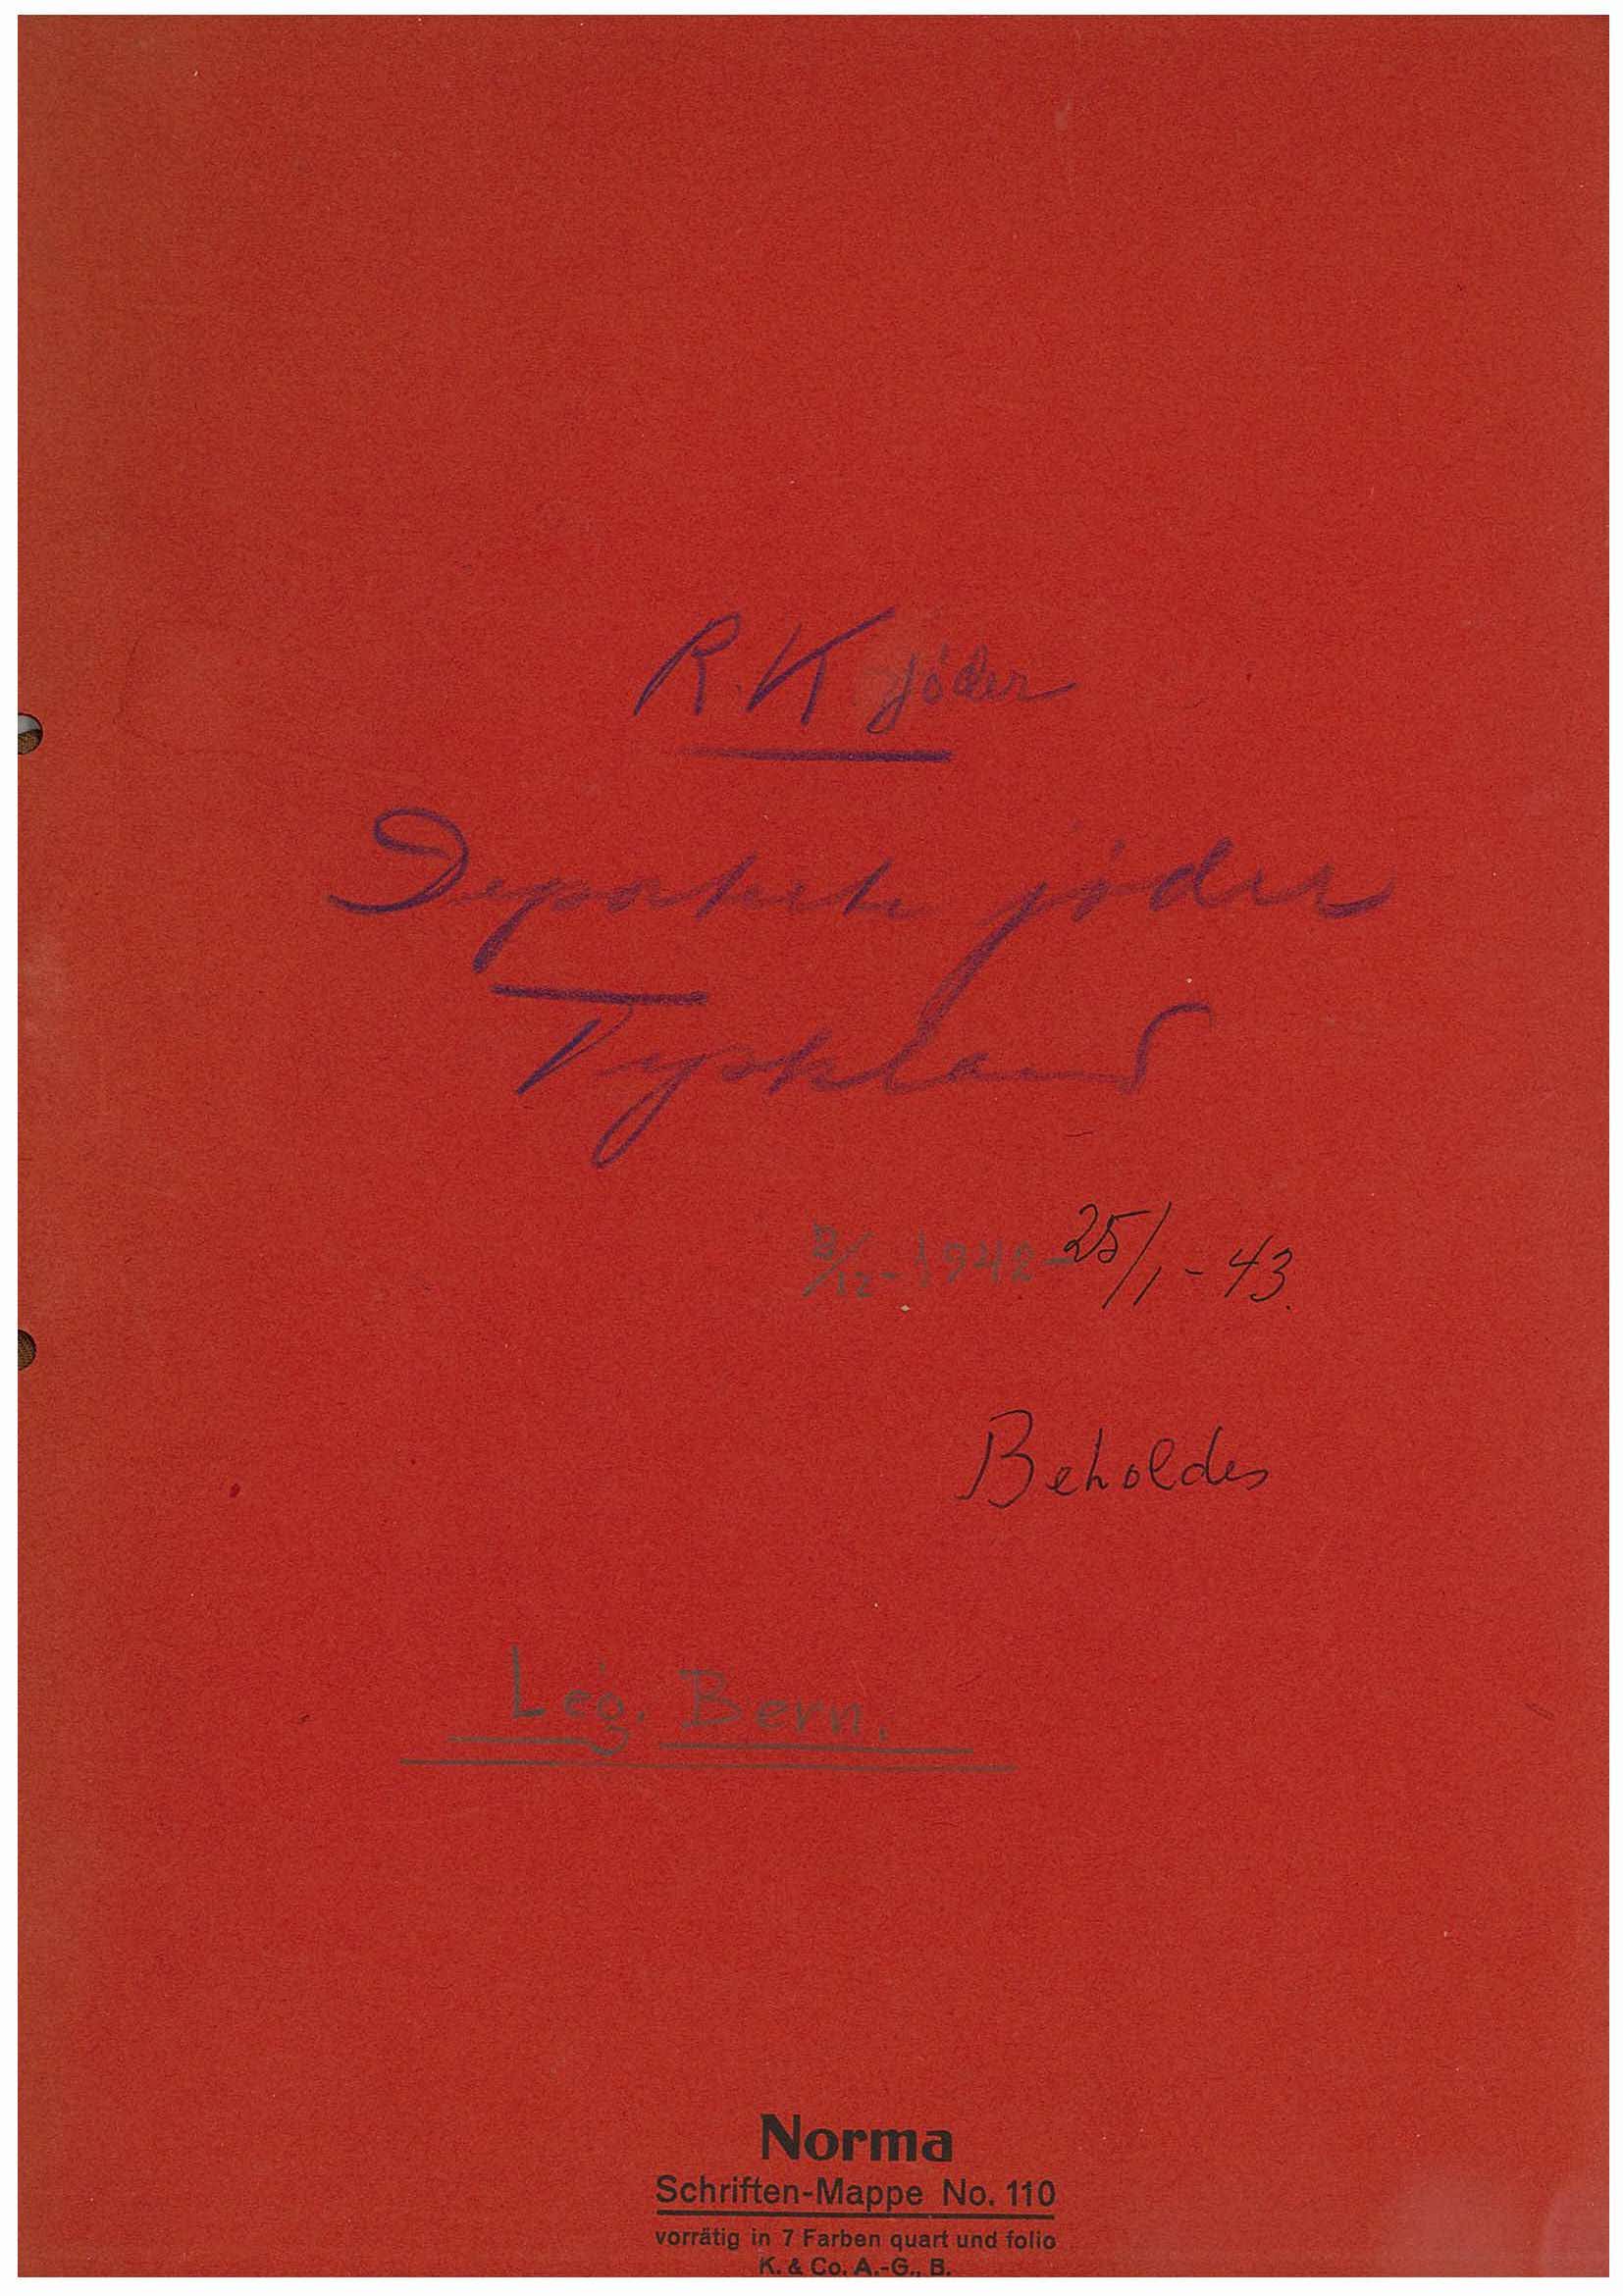 R.K jøder
Deporterte jøder
Tyskland
2/12-1942-25/1-43.
Beholdes
Leg. Bern.
Norma
Schriften-Mappe No. 110
vorrätig in 7 Farben quart und folio
K. & Co. A.-G., B.